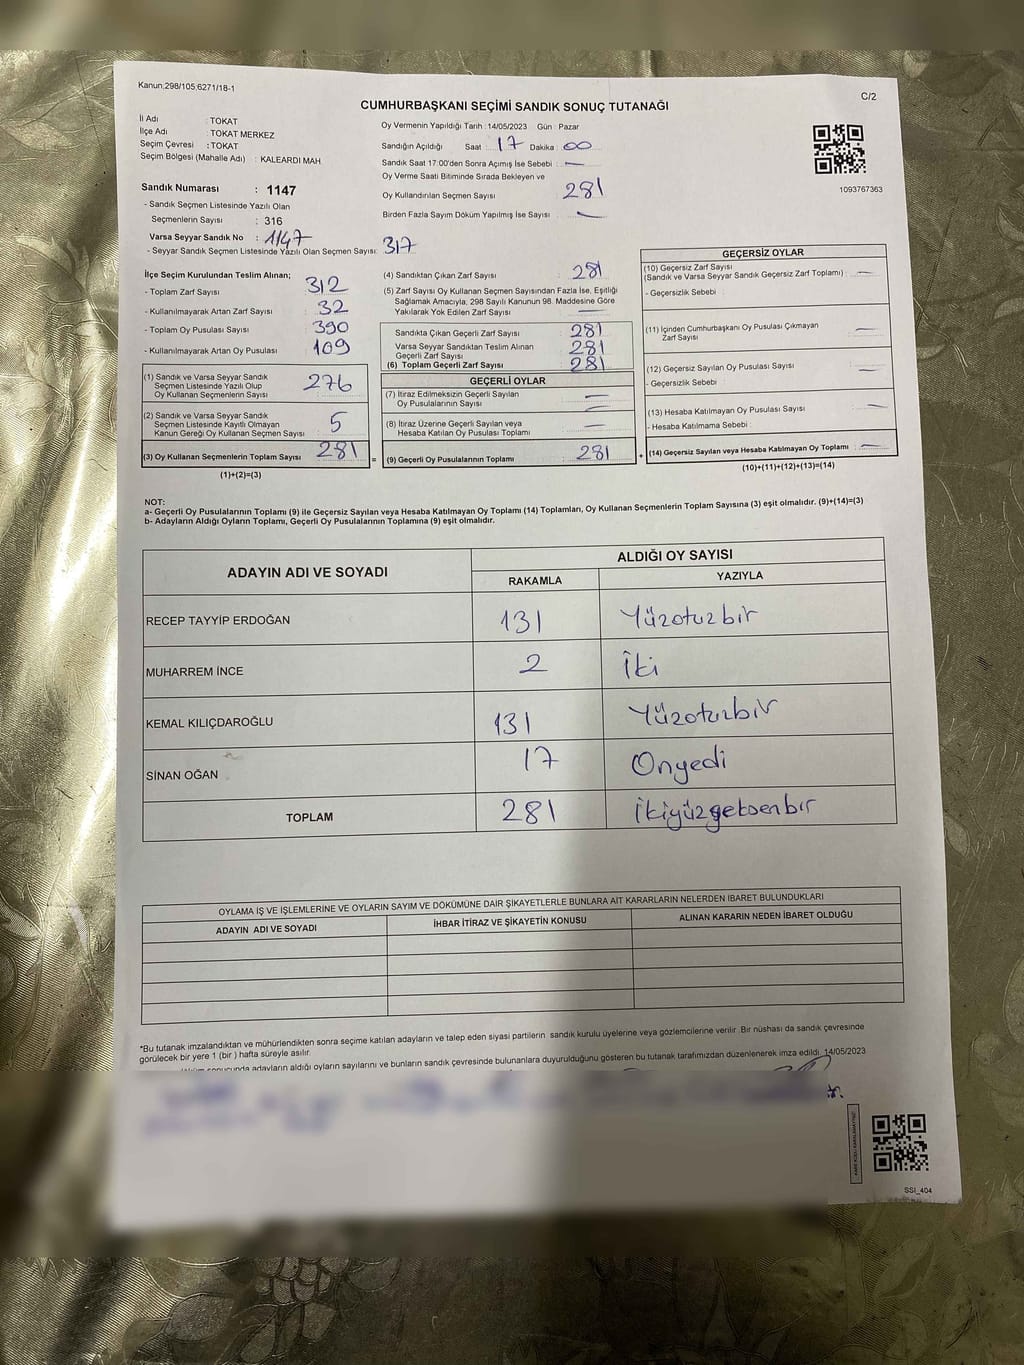 Kanun;298/105;6271/18-1
C/2
CUMHURBAŞKANI SEÇİMİ SANDIK SONUÇ TUTANAĞI
İl Adı : TOKAT
İlçe Adı : TOKAT MERKEZ
Seçim Çevresi : TOKAT
Seçim Bölgesi (Mahalle Adı) : KALEARDI MAH
Sandık Numarası : 1147
- Sandık Seçmen Listesinde Yazılı Olan
Seçmenlerin Sayısı : 316
Varsa Seyyar Sandık No : 1147
- Seyyar Sandık Seçmen Listesinde Yazılı Olan Seçmen Sayısı: 317
Oy Vermenin Yapıldığı Tarih :14/05/2023 Gün : Pazar
Sandığın Açıldığı Saat 17 Dakika : 00
Sandık Saat 17:00'den Sonra Açımış İse Sebebi : —
Oy Verme Saati Bitiminde Sırada Bekleyen ve
Oy Kullandırılan Seçmen Sayısı 281
Birden Fazla Sayım Döküm Yapılmış İse Sayısı —
1093767363
İlçe Seçim Kurulundan Teslim Alınan;
- Toplam Zarf Sayısı 312
- Kullanılmayarak Artan Zarf Sayısı 32
- Toplam Oy Pusulası Sayısı 390
- Kullanılmayarak Artan Oy Pusulası 109
(1) Sandık ve Varsa Seyyar Sandık
Seçmen Listesinde Yazılı Olup
Oy Kullanan Seçmenlerin Sayısı 276
(2) Sandık ve Varsa Seyyar Sandık
Seçmen Listesinde Kayıtlı Olmayan
Kanun Gereği Oy Kullanan Seçmen Sayısı 5
(3) Oy Kullanan Seçmenlerin Toplam Sayısı 281 =
(1)+(2)=(3)
(4) Sandıktan Çıkan Zarf Sayısı 281
(5) Zarf Sayısı Oy Kullanan Seçmen Sayısından Fazla İse, Eşitliği
Sağlamak Amacıyla, 298 Sayılı Kanunun 98. Maddesine Göre
Yakılarak Yok Edilen Zarf Sayısı —
Sandıkta Çıkan Geçerli Zarf Sayısı 281
Varsa Seyyar Sandıktan Teslim Alınan
Geçerli Zarf Sayısı 281
(6) Toplam Geçerli Zarf Sayısı 281
GEÇERLİ OYLAR
(7) İtiraz Edilmeksizin Geçerli Sayılan
Oy Pusulalarının Sayısı —
(8) İtiraz Üzerine Geçerli Sayılan veya
Hesaba Katılan Oy Pusulası Toplamı —
(9) Geçerli Oy Pusulalarının Toplamı 281 +
GEÇERSİZ OYLAR
(10) Geçersiz Zarf Sayısı
(Sandık ve Varsa Seyyar Sandık Geçersiz Zarf Toplamı) —
- Geçersizlik Sebebi :
(11) İçinden Cumhurbaşkanı Oy Pusulası Çıkmayan
Zarf Sayısı —
(12) Geçersiz Sayılan Oy Pusulası Sayısı —
- Geçersizlik Sebebi :
(13) Hesaba Katılmayan Oy Pusulası Sayısı —
- Hesaba Katılmama Sebebi :
(14) Geçersiz Sayılan veya Hesaba Katılmayan Oy Toplamı —
(10)+(11)+(12)+(13)=(14)
NOT:
a- Geçerli Oy Pusulalarının Toplamı (9) ile Geçersiz Sayılan veya Hesaba Katılmayan Oy Toplamı (14) Toplamları, Oy Kullanan Seçmenlerin Toplam Sayısına (3) eşit olmalıdır. (9)+(14)=(3)
b- Adayların Aldığı Oyların Toplamı, Geçerli Oy Pusulalarının Toplamına (9) eşit olmalıdır.
ADAYIN ADI VE SOYADI ALDIĞI OY SAYISI
RAKAMLA YAZIYLA
RECEP TAYYİP ERDOĞAN 131 Yüzotuzbir
MUHARREM İNCE 2 İki
KEMAL KILIÇDAROĞLU 131 Yüzotuzbir
SİNAN OĞAN 17 Onyedi
TOPLAM 281 İkiyüzseksenbir
OYLAMA İŞ VE İŞLEMLERİNE VE OYLARIN SAYIM VE DÖKÜMÜNE DAİR ŞİKAYETLERLE BUNLARA AİT KARARLARIN NELERDEN İBARET BULUNDUKLARI
ADAYIN ADI VE SOYADI İHBAR İTİRAZ VE ŞİKAYETİN KONUSU ALINAN KARARIN NEDEN İBARET OLDUĞU
*Bu tutanak imzalandıktan ve mühürlendikten sonra seçime katılan adayların ve talep eden siyasi partilerin sandık kurulu üyelerine veya gözlemcilerine verilir .Bir nüshası da sandık çevresinde
görülecek bir yere 1 (bir ) hafta süreyle asılır.
sonucunda adayların aldığı oyların sayılarını ve bunların sandık çevresinde bulunanlara duyurulduğunu gösteren bu tutanak tarafımızdan düzenlenerek imza edildi. 14/05/2023
SSI_404